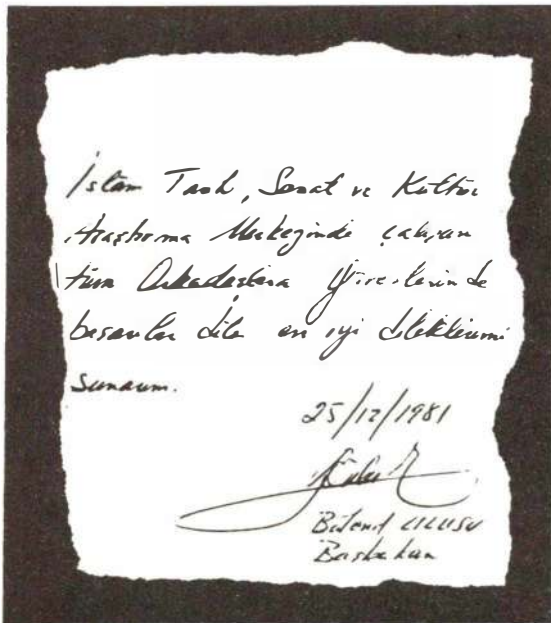 İslam Tarih, Sanat ve Kültür
Araştırma Merkezinde çalışan
tüm Arkadaşlara görevlerinde
başarılar diler en iyi dileklerimi
sunarım.
25/12/1981
Bülend ULUSU
Başbakan